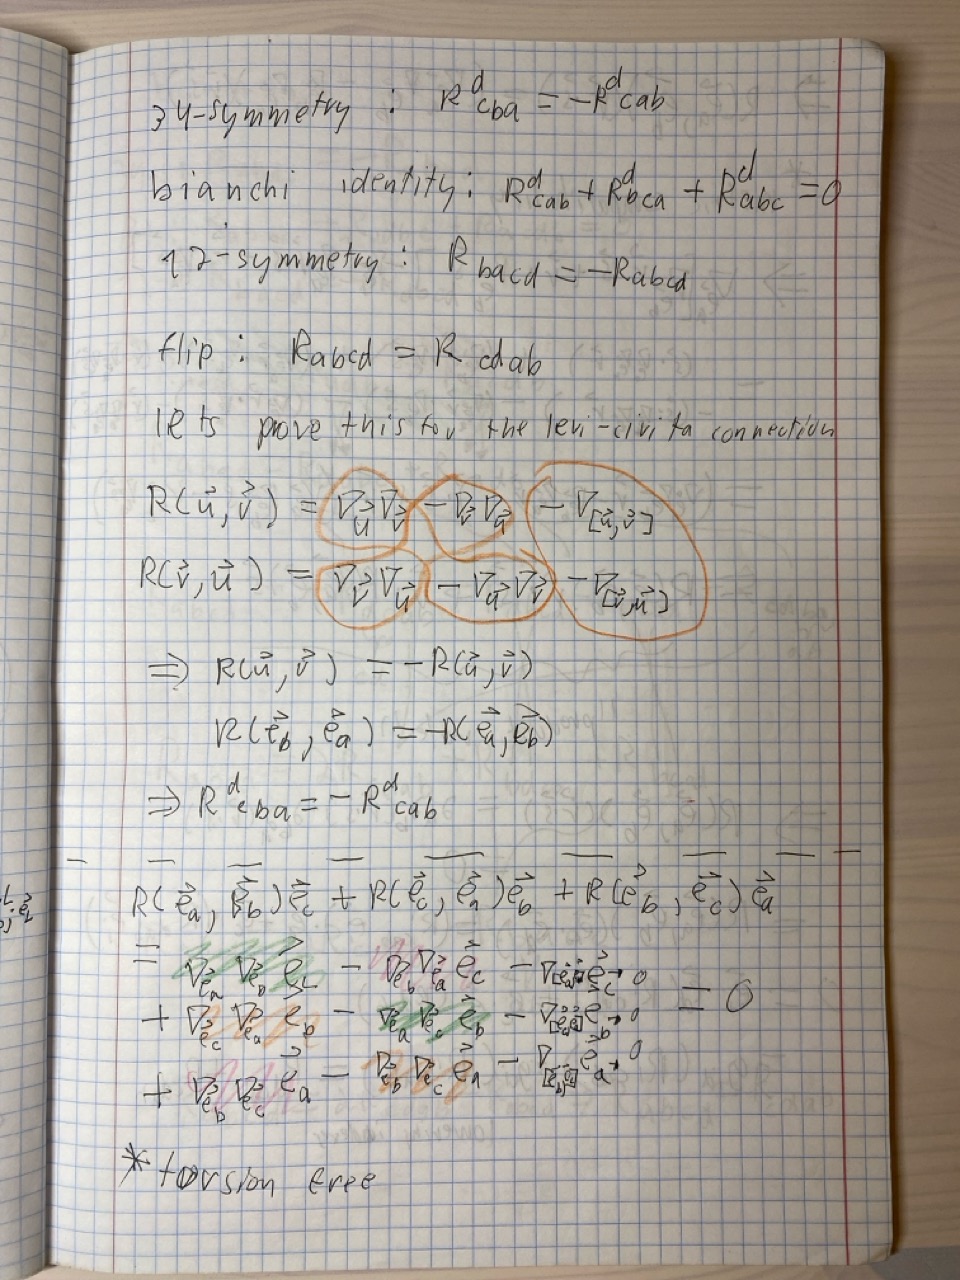 34-symmetry : R^d_cba = -R^d_cab
bianchi identity: R^d_cab + R^d_bca + R^d_abc = 0
12-symmetry: R_bacd = -R_abcd
flip: R_abcd = R_cdab
lets prove this for the levi-civita connection
R(u⃗, v⃗) = ∇_u⃗ ∇_v⃗ - ∇_v⃗ ∇_u⃗ - ∇_[u⃗,v⃗]
R(v⃗, u⃗) = ∇_v⃗ ∇_u⃗ - ∇_u⃗ ∇_v⃗ - ∇_[v⃗,u⃗]
⇒ R(u⃗, v⃗) = -R(u⃗, v⃗)
R(e⃗_b, e⃗_a) = -R(e⃗_a, e⃗_b)
⇒ R^d_cba = -R^d_cab
R(e⃗_a, e⃗_b)e⃗_c + R(e⃗_c, e⃗_a)e⃗_b + R(e⃗_b, e⃗_c)e⃗_a
= ∇_e⃗_a ∇_e⃗_b e⃗_c - ∇_e⃗_b ∇_e⃗_a e⃗_c - ∇ e⃗_c → 0
+ ∇_e⃗_c ∇_e⃗_a e⃗_b - ∇_e⃗_a ∇_e⃗_c e⃗_b - ∇ e⃗_b → 0 = 0
+ ∇_e⃗_b ∇_e⃗_c e⃗_a - ∇_e⃗_b ∇_e⃗_c e⃗_a - ∇ e⃗_a → 0
* torsion free